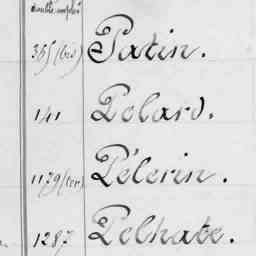 double emploi
365 (bis) Patin.
141 Polard.
1179 (ter) Pélerin.
1287 Pelhate.